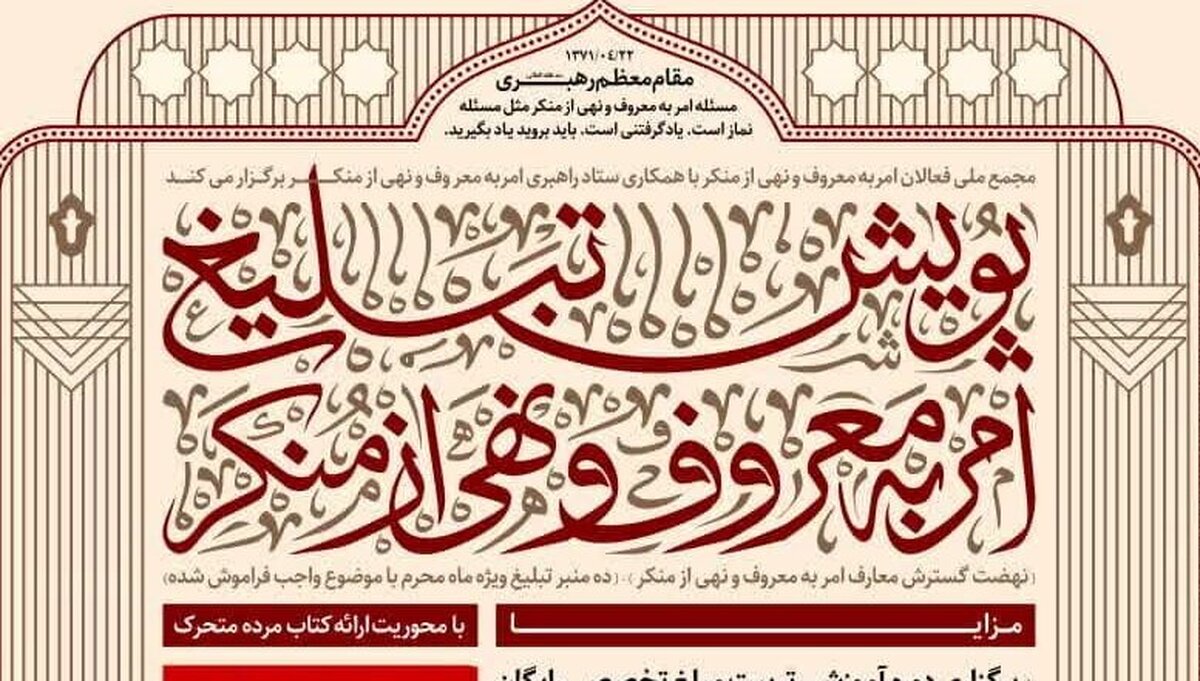 ۱۳۷۱/۰۴/۲۲
مقام معظم رهبری
مسئله امر به معروف و نهی از منکر مثل مسئله
نماز است. یادگرفتنی است. باید بروید یاد بگیرید.
مجمع ملی فعالان امر به معروف و نهی از منکر با همکاری ستاد راهبری امر به معروف و نهی از منکر برگزار می کند
پویش تبلیغ
امر به معروف و نهی از منکر
(نهضت گسترش معارف امر به معروف و نهی از منکر) - (ده منبر تبلیغ ویژه ماه محرم با موضوع واجب فراموش شده)
مزایا
با محوریت ارائه کتاب مرده متحرک
برگزاری دوره آموزشی تربیت مبلغ تخصصی رایگان